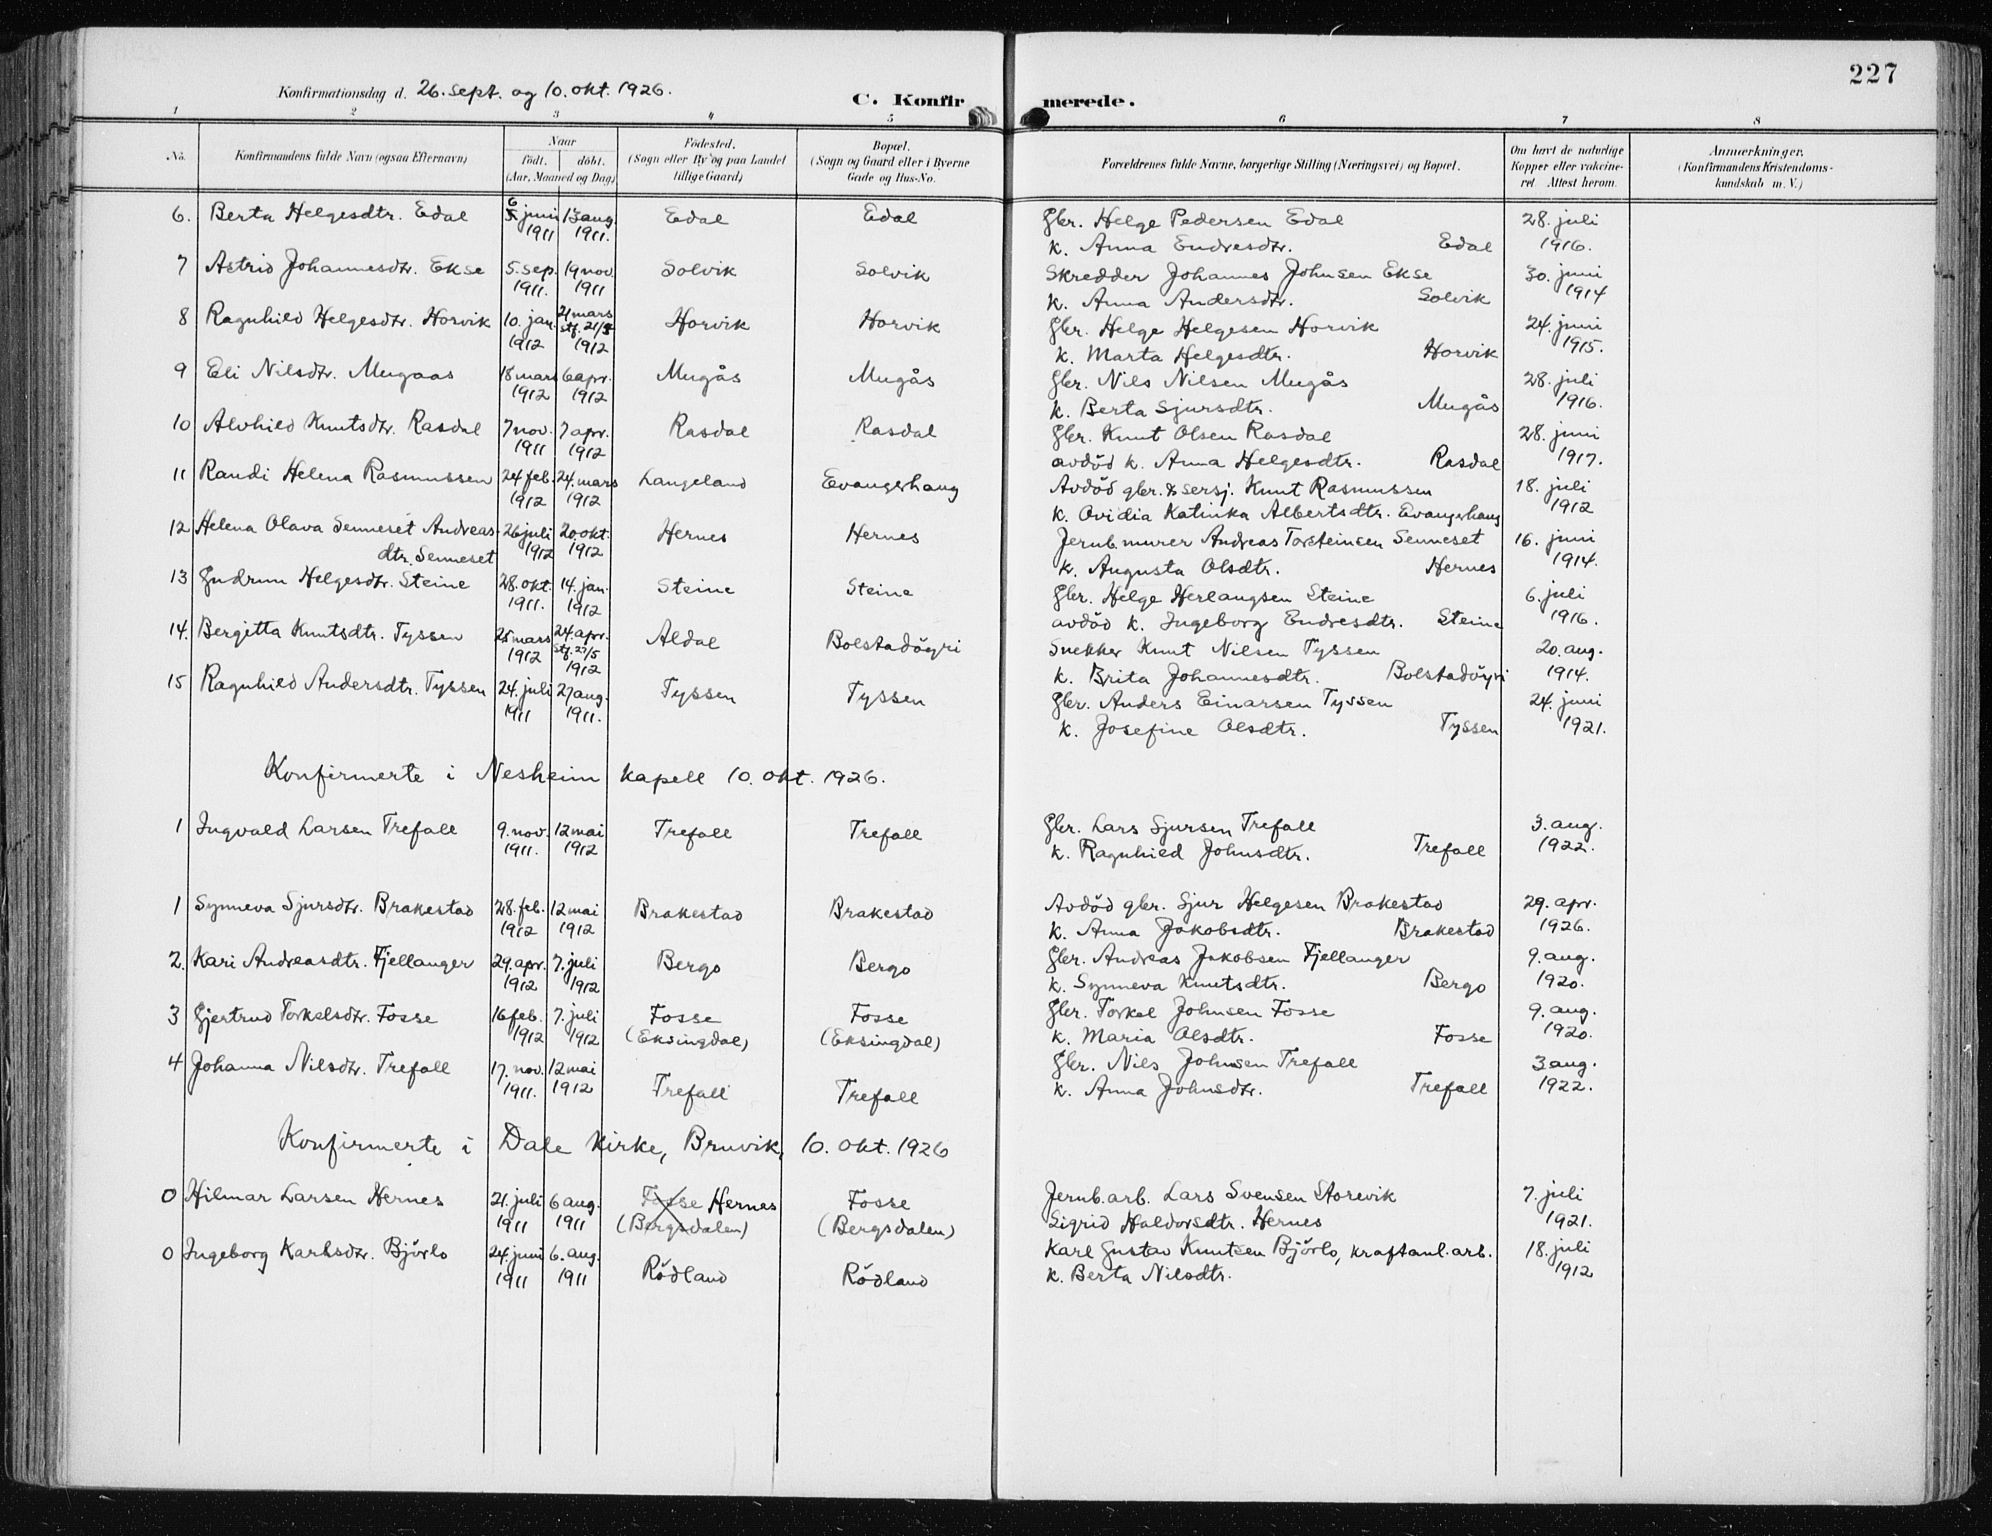 227
Konfirmationsdag d. 26. sept. og 10. okt. 1926.
C. Konfirmerede.
1 2 3 4 5 6 7 8
No. Konfirmandens fulde Navn (ogsaa Efternavn) Naar født. døbt. (Aar, Maaned og Dag) Fødested. (Sogn eller By og paa Landet tillige Gaard) Bopæl. (Sogn og Gaard eller i Byerne Gade og Hus-No. Forældrenes fulde Navne, borgerlige Stilling (Næringsvei) og Bopæl. Om havt de naturlige Kopper eller vakcineret. Attest herom. Anmærkninger. (Konfirmandens Kristendomskundskab m. V.)
6. Berta Helgesdtr. Edal 6 juni 1911 13 aug. 1911. Edal Edal Gbr. Helge Pedersen Edal 28. juli
k. Anna Endresdtr. Edal 1916.
7 Astrid Johannesdtr. Ekse 5. sep. 1911. 19 nov. 1911 Solvik Solvik Skredder Johannes Johnsen Ekse 30. juni
k. Anna Andersdtr. Solvik 1914
8 Ragnhild Helgesdtr. Horvik 10. jan. 1912 21 mars stf. 21/5 1912 Horvik Horvik Gbr. Helge Helgesen Horvik 24. juni
k. Marta Helgesdtr. Horvik 1915.
9 Eli Nilsdtr. Mugaas 18 mars 1912 6 apr. 1912 Mugås Mugås Gbr. Nils Nilsen Mugås 28. juli
k. Berta Sjursdtr. Mugås 1916.
10 Alvhild Knutsdtr. Rasdal 7 nov. 1911 7 apr. 1912 Rasdal Rasdal Gbr. Knut Olsen Rasdal 28. juni
avdöd k. Anna Helgesdtr. Rasdal 1917.
11 Randi Helena Rasmussen 24 feb. 1912 24. mars 1912 Langeland Evangerhaug Avdöd gbr. & sersj. Knut Rasmussen 18. juli
k. Ovidia Katinka Albertsdtr. Evangerhaug 1912
12 Helena Olava Senneset Andreasdtr. Senneset 26 juli 1912 20. okt. 1912 Hernes Hernes Jernb.murer Andreas Torsteinsen Senneset 16. juni
k. Augusta Olsdtr. Hernes 1914.
13 Gudrun Helgesdtr. Steine 28. okt. 1911. 14. jan. 1912 Steine Steine Gbr. Helge Herlaugsen Steine 6. juli
avdöd k. Ingeborg Endresdtr. Steine 1916.
14. Bergitta Knutsdtr. Tyssen mars 1912 24. apr. stf. 27/5 1912 Aldal Bolstadöyri Snekker Knut Nilsen Tyssen 20. aug.
k. Brita Johannesdtr. Bolstadöyri 1914.
15 Ragnhild Andersdtr. Tyssen 24. juli 1911 27 aug. 1911. Tyssen Tyssen Gbr. Anders Einarsen Tyssen 24. juni
k. Josefine Olsdtr. Tyssen 1921.
Konfirmerte i Nesheim kapell 10. okt. 1926.
1 Ingvald Larsen Trefall 9. nov. 1911. 12 mai 1912 Trefall Trefall Gbr. Lars Sjursen Trefall 3. aug.
k. Ragnhild Johnsdtr. Trefall 1922.
1 Synneva Sjursdtr. Brakestad 28. feb. 1912 12 mai 1912 Brakestad Brakestad Avdöd gbr. Sjur Helgesen Brakestad 29. apr.
k. Anna Jakobsdtr. Brakestad 1926.
2. Kari Andreasdtr. Fjellanger 29. apr. 1912 7. juli 1912 Bergo Bergo Gbr. Andreas Jakobsen Fjellanger 9. aug.
k. Synneva Knutsdtr. Bergo 1920.
3 Gjertrud Torkelsdtr. Fosse 16 feb. 1912 7. juli 1912 Fosse (Eksingdal) Fosse (Eksingdal) Gbr. Torkel Johnsen Fosse 9. aug.
k. Maria Olsdtr. Fosse 1920.
4 Johanna Nilsdtr. Trefall 17. nov. 1911. 12 mai 1912 Trefall Trefall Gbr. Nils Johnsen Trefall 3 aug.
k. Anna Johnsdtr. Trefall 1922.
Konfirmerte i Dale kirke, Bruvik, 10. okt. 1926
0 Hilmar Larsen Hernes 21. juli 1911 6 aug. 1911 Fosse Hernes (Bergsdalen) Fosse (Bergsdalen) Jernb.arb. Lars Svensen Storevik 7. juli
Sigrid Haldorsdtr. Hernes 1921.
0 Ingeborg Karlsdtr. Björlo 24. juni 1911 6. aug. 1911 Rödland Rödland Karl Gustav Knutsen Björlo, kraftanl.arb. 18. juli
k. Berta Nilsdtr. 1912